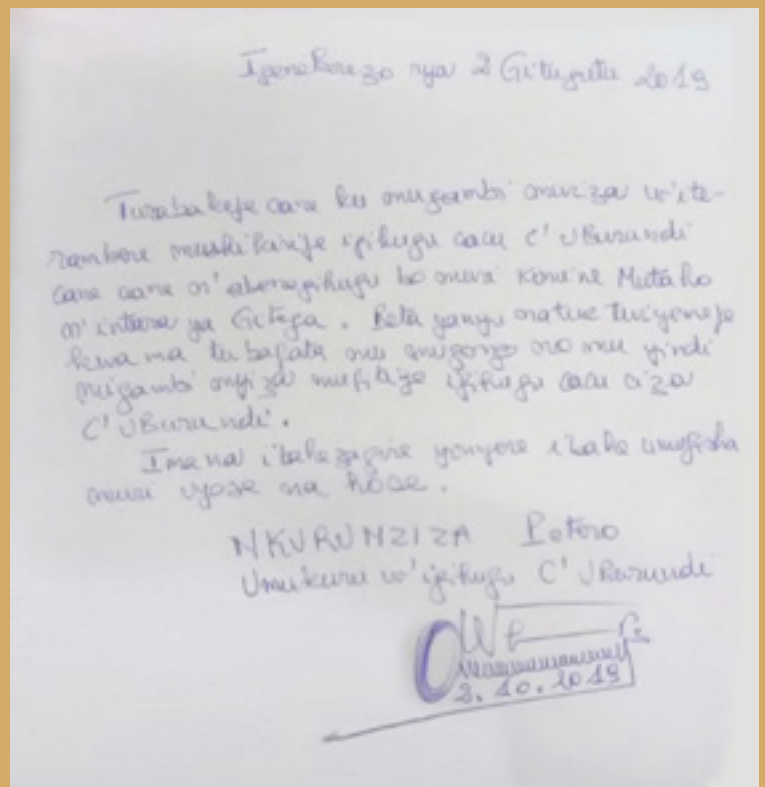 Igenekerezo rya 2 Gitugutu 2019
Turabakeje cane ku mugambi muwiza w'ite-
rambere mushikirije igihugu cacu C'UBurundi
cane cane n'abenegihugu bo muri Komine Mutaho
n'intara ya Gitega. Leta yanyu natwe twiyemeje
kuva na tubafata mu mugongo no mu yindi
migambi myiza mufitiye igihugu cacu ciza
C'UBurundi.
Imana ibahezagire yongere ibahe umugisha
muri vyose na hose.
NKURUNZIZA Petero
Umukuru w'igihugu C'UBurundi
2.10.2019